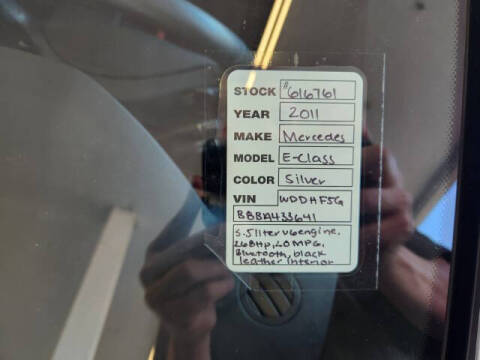 STOCK #616761
YEAR 2011
MAKE Mercedes
MODEL E-Class
COLOR Silver
VIN WDDHF5G
BBBA433641
3.5 liter v6 engine,
268Hp, 20 MPG,
Bluetooth, black
leather interior